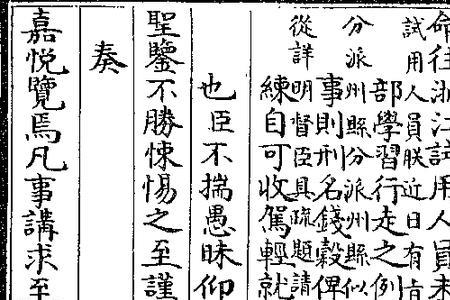 命往浙江試用人員未
試用人員朕近日有旨
部學習行走之例
分派州縣分派州縣似
事則刑名錢穀俾
從詳明督臣具疏題請
練自可收駕輕就
也臣不揣愚昧仰
聖鑒不勝悚惕之至謹
奏
嘉悅覽焉凡事講求至